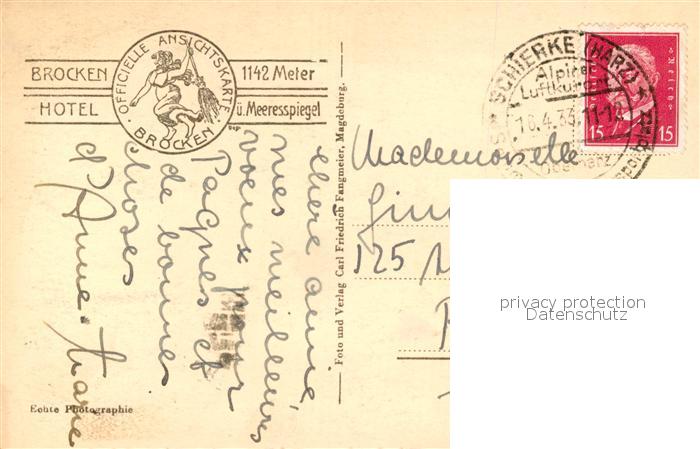 BROCKEN
HOTEL
OFFICIELLE ANSICHTSKARTE
BROCKEN
1142 Meter
ü. Meeresspiegel
SCHIERKE (HARZ)
Alpiner
Luftkurort
16.4.33.11-12
15 15
chère amie
mes meilleurs
voeux pour
Paques et
de bonnes
choses
d'Anne-Marie
Foto und Verlag Carl Friedrich Fangmeier, Magdeburg.
Mademoiselle
125
privacy protection
Datenschutz
Echte Photographie